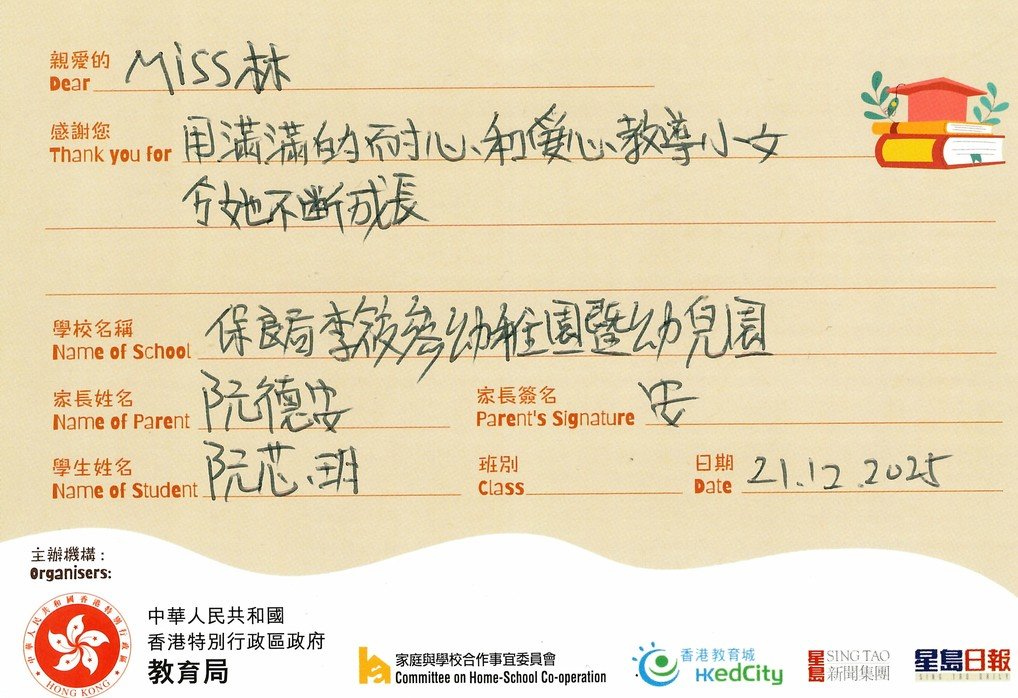 親愛的
Dear Miss林
感謝您
Thank you for 用滿滿的耐心和愛心教導小女
令她不斷成長
學校名稱
Name of School 保良局李筱參幼稚園暨幼兒園
家長姓名
Name of Parent 阮德安
家長簽名
Parent's Signature 安
學生姓名
Name of Student 阮芯玥
班別
Class
日期
Date 21.12.2025
主辦機構：
Organisers:
中華人民共和國
香港特別行政區政府
教育局
中華人民共和國香港特別行政區
HONG KONG
家庭與學校合作事宜委員會
Committee on Home-School Co-operation
香港教育城
HKedCity
星島 SING TAO
新聞集團
星島日報
SING TAO DAILY